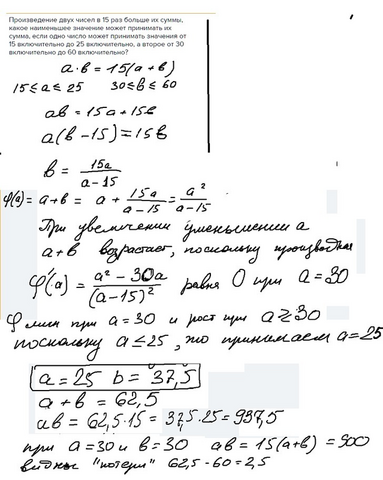 Произведение двух чисел в 15 раз больше их суммы,
какое наименьшее значение может принимать их
сумма, если одно число может принимать значения от
15 включительно до 25 включительно, а второе от 30
включительно до 60 включительно?
a · b = 15(a + b)
15 ≤ a ≤ 25 30 ≤ b ≤ 60
ab = 15a + 15b
a(b - 15) = 15b
b = 15a / a - 15
φ(a) = a + b = a + 15a / a - 15 = a² / a - 15
При увеличении уменьшении a
a + b возрастает, поскольку производная
φ'(a) = a² - 30a / (a - 15)² равна 0 при a = 30
φ мин при a = 30 и рост при a ≥ 30
поскольку a ≤ 25, то принимаем a = 25
a = 25 b = 37,5
a + b = 62,5
ab = 62,5 · 15 = 37,5 · 25 = 937,5
при a = 30 и b = 30 ab = 15(a+b) = 900
видны "потери" 62,5 - 60 = 2,5